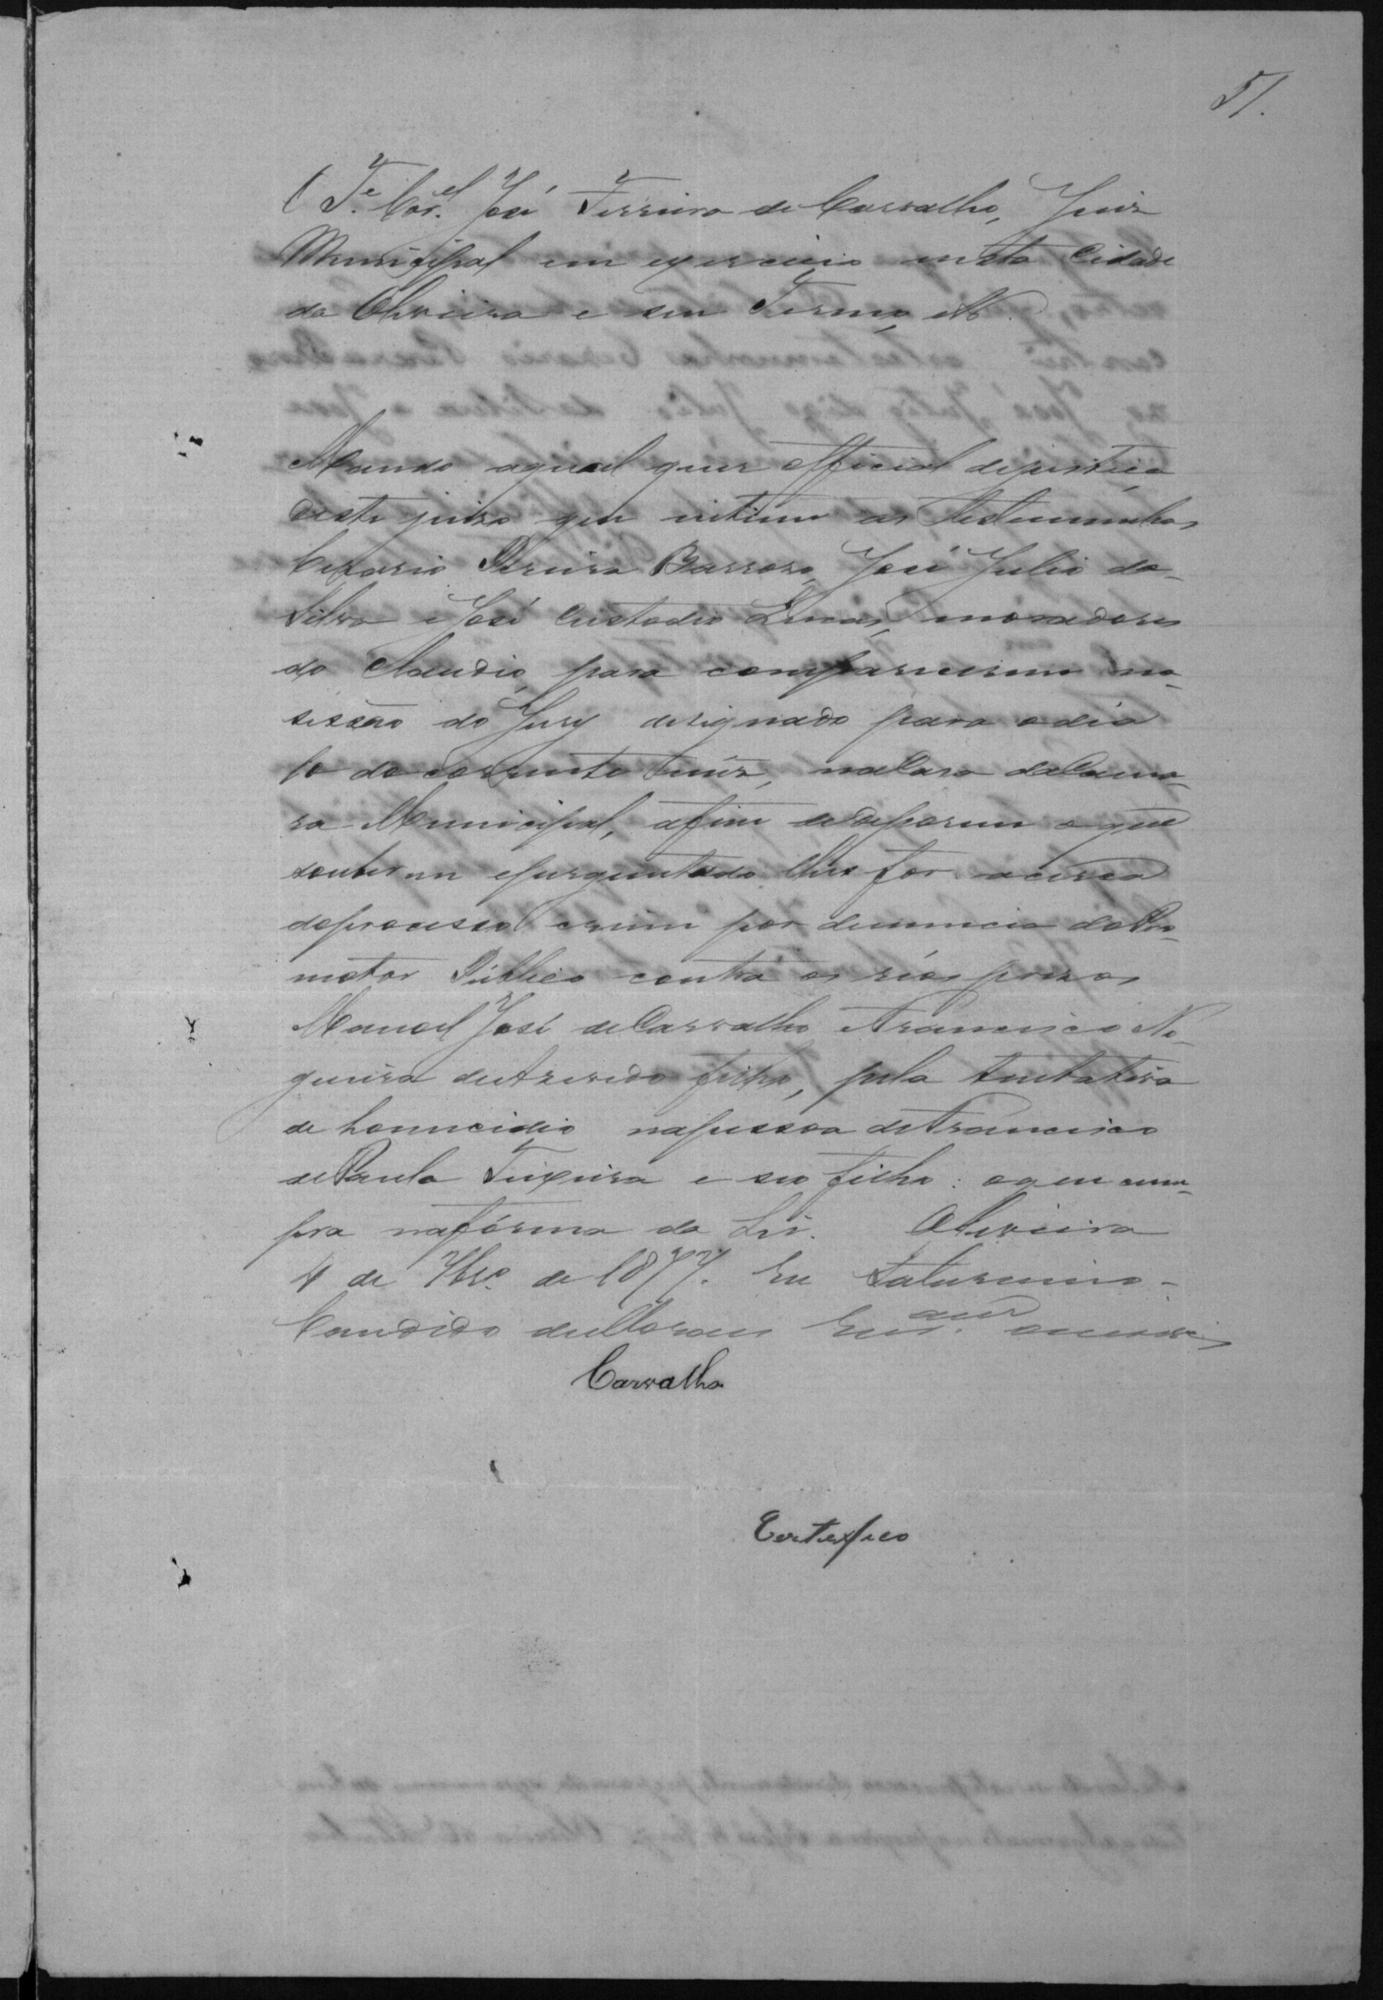 51.
O Te. Corel. José Ferreira de Carvalho, Juiz
Municipal em exercicio nesta Cidade
da Oliveira e seu Termo, etc.
Mando aqual quer official dejustiça
deste juizo que intime as testemunhas
Cezario Pereira Barrozo, José Julio da
Silva e José Custodio Lucas, moradores
do Claudio, para comparecerem na
sessão do Jury designado para o dia
10 do corrente mez, na Casa da Cama-
ra Municipal, afim de deporem o que
souberem eperguntado lhes for acerca
doprocesso crime por denuncia do Pro-
motor Publico contra os réos prezos
Manoel José de Carvalho e Francisco No-
gueira de Azevedo filho, pela tentativa
de homicidio napessoa de Francisco
de Paula Teixeira e seo filho: oque cum-
pra na fórma da Lei. Oliveira
4 de de 1877. Eu Saturnino
Candido de Moraes Escam. o escrevi
Carvalho
Certifico